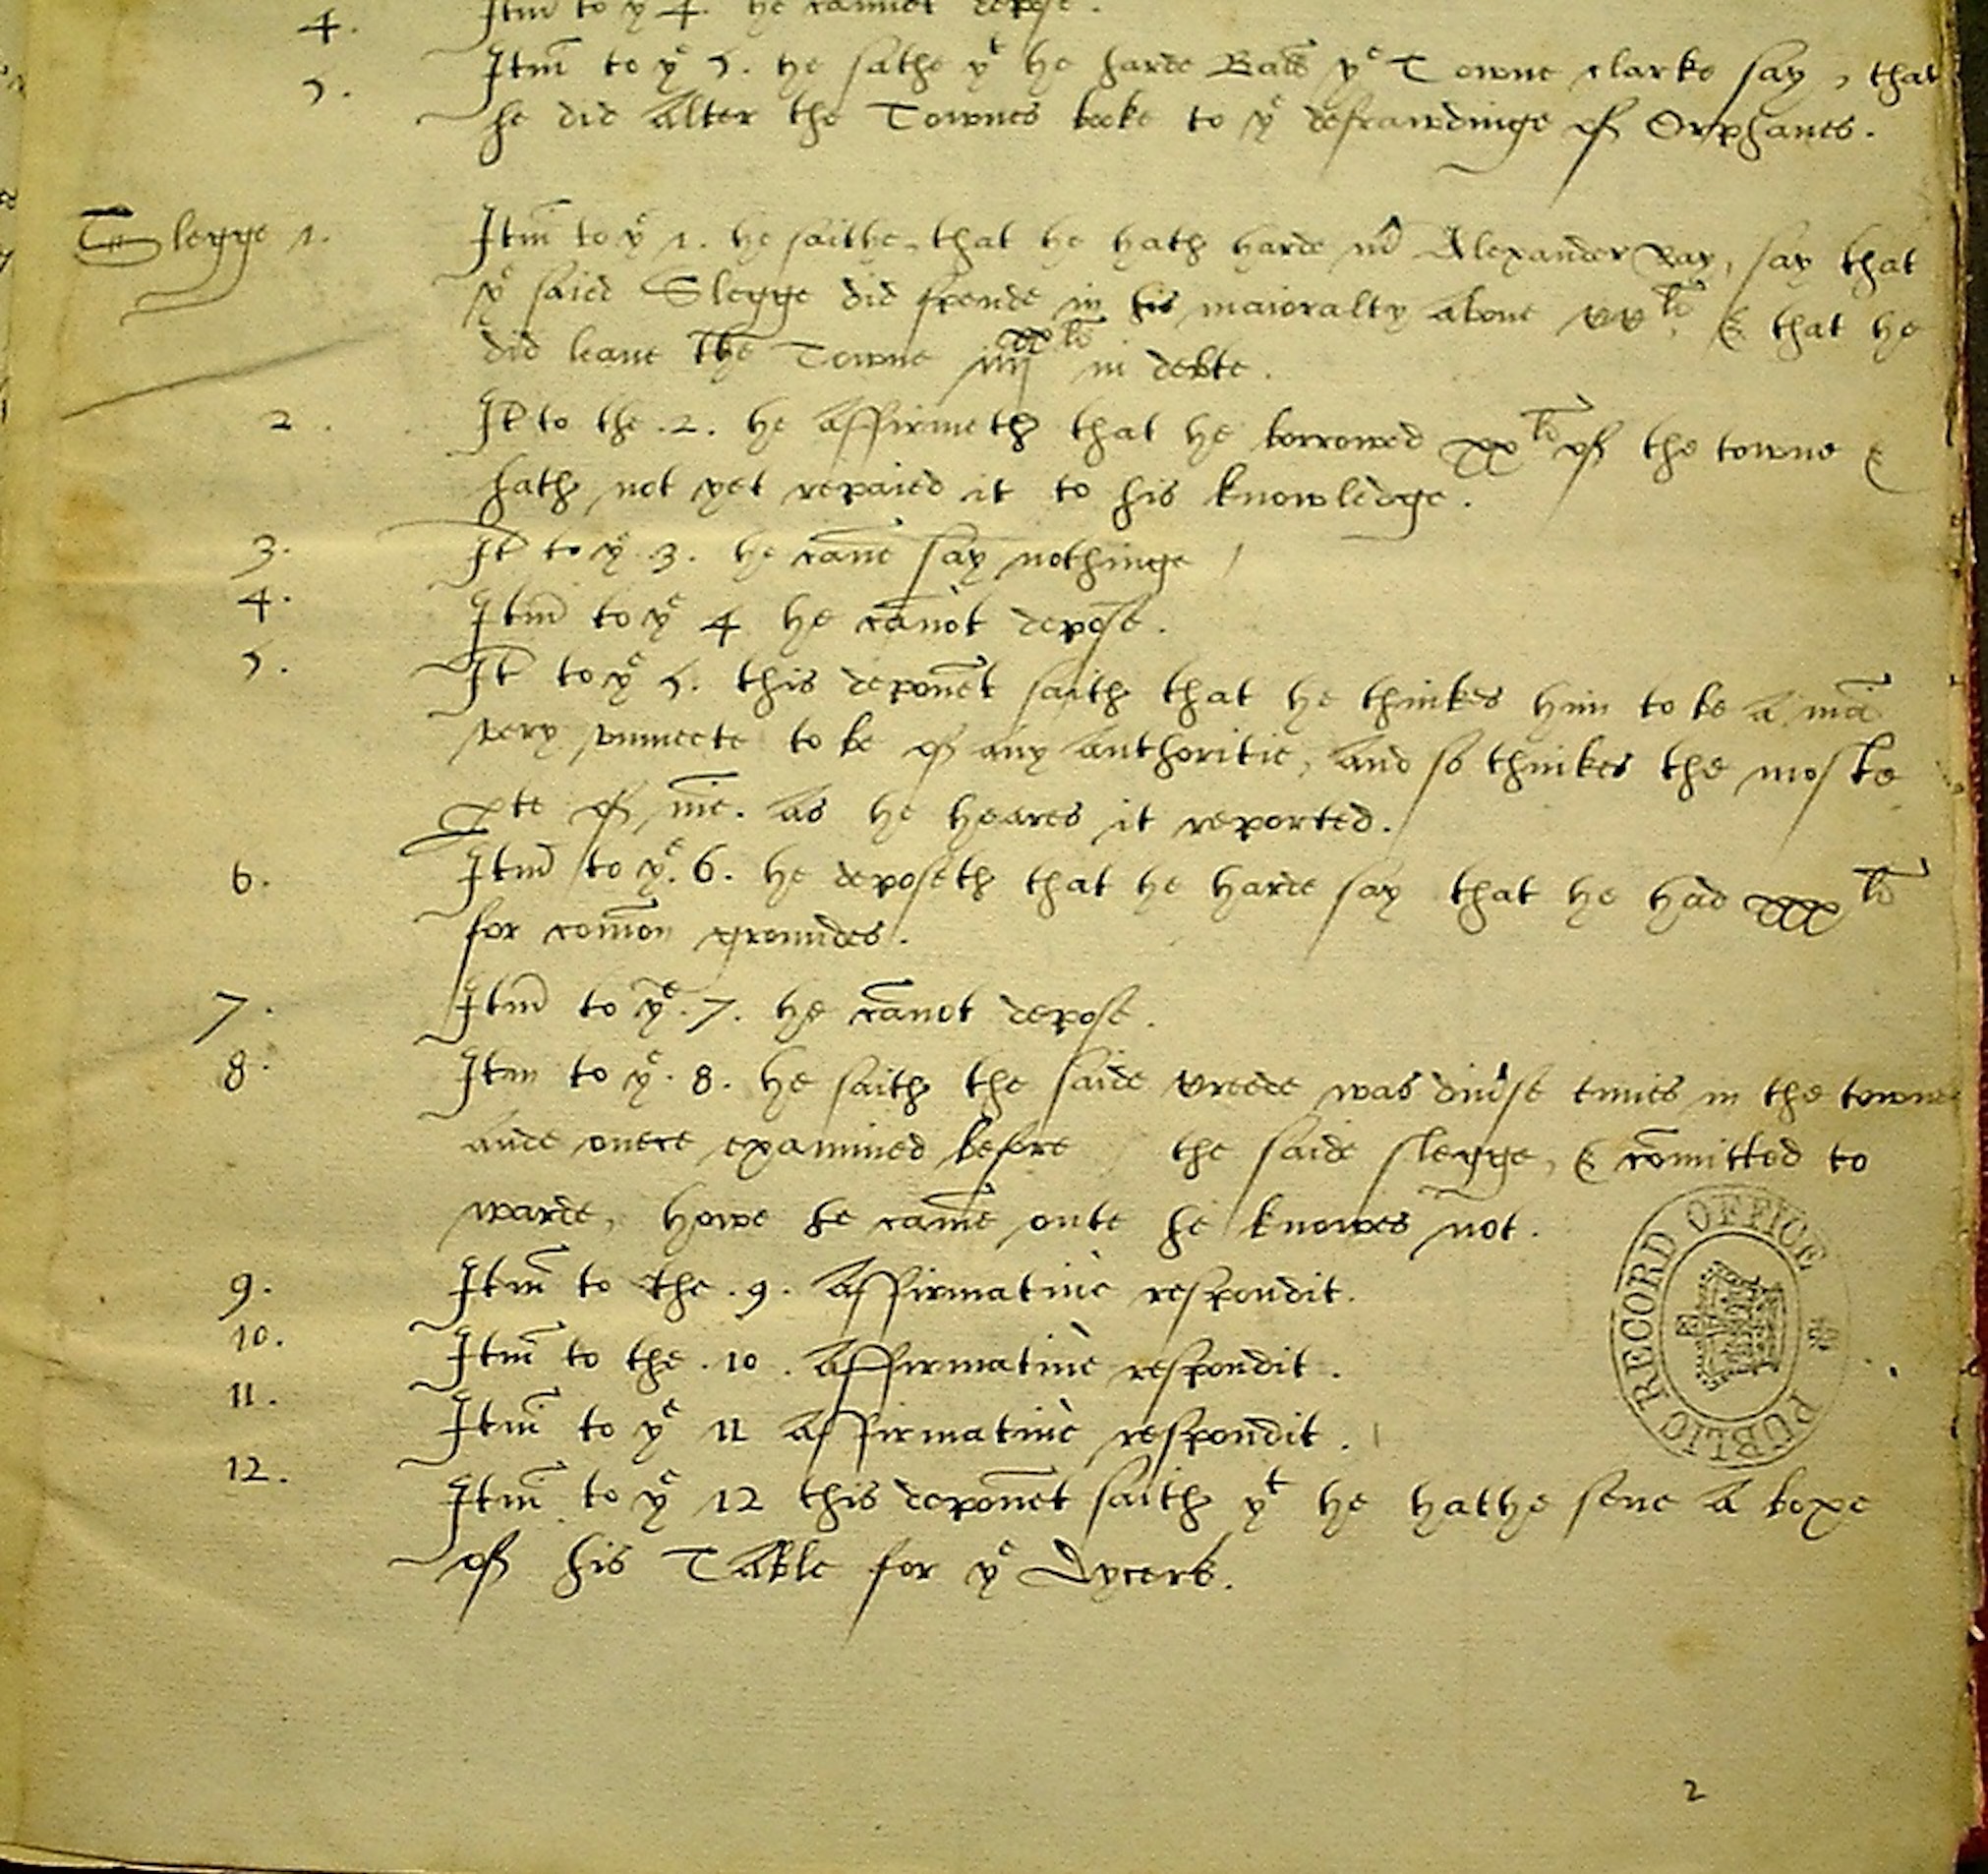 4. Itm to yͤ 4. he cannot depose.
5. Itm̄ to yͤ 5. he sathe yͭ he harde yͤ Towne clarke say, that
he did alter the Townes booke to yͤ defrawdinge of Orphanes.
Slegge 1. Itm̄ to yͤ 1. he saithe, that he hath harde mʳ Alexander Ray, say that
yͤ saied Slegge did spende in his maioralty alone xxˡⁱ, & that he
did leaue the Towne iiijˣˣ ˡⁱ in debte.
2. It̄ to the .2. he affirmeth that he borrowed xxˡⁱ of the towne &
hath not yet repaied it to his knowledge.
3. It̄ to yͤ .3. he cane say nothinge
4. Itm̄ to yͤ 4 he cānot depose.
5. It̄ to yͤ 5. this depon̄et saith that he thinkes him to be a mā
very vnmeete to be of any authoritie, and so thinkes the moste
ꝑte of mē. as he heares it reported.
6. Itm̄ to yͤ .6. he deposeth that he harde say that he had xxxˡⁱ
for com̄on groundes.
7. Itm̄ to yͤ .7. he cānot depose.
8. Itm to yͤ .8. he saith the saide was diuᵉse times in the towne
ande onere examined before the saide slegge, & cōmitted to
warde, howe he came oute he knowes not.
9. Itm̄ to the .9. Affirmatiuè respondit.
10. Itm̄ to the .10. Affirmatiuè respondit.
11. Itm̄ to yͤ 11 Affirmatiuè respondit.
12. Itm̄ to yͤ 12 this depon̄et saith yͭ he hathe sene a boxe
of his Table for yͤ Dycers.
PUBLIC RECORD OFFICE
2